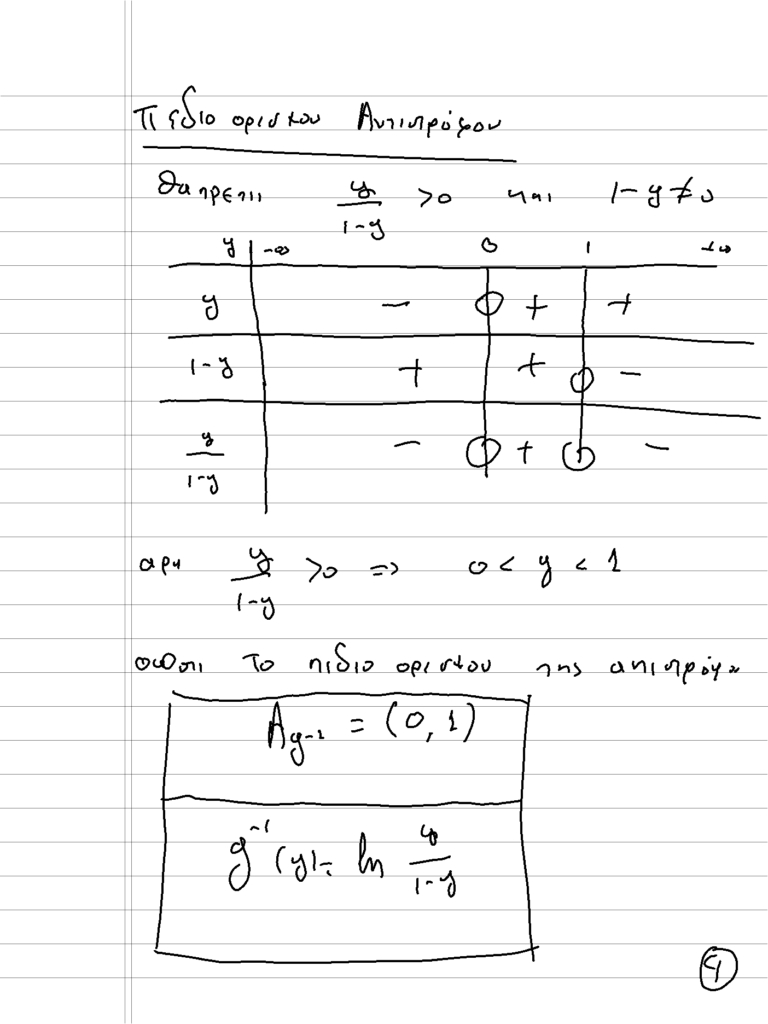 Πεδιο ορισμου Αντιστρόφου
θα πρεπει y/(1-y) >0 και 1-y≠0
y -∞ 0 1 +∞
y - 0 + +
1-y + + 0 -
y/(1-y) - 0 + 0 -
αρα y/(1-y) >0 => 0 < y < 1
το πεδιο ορισμου της αντιστρόφου
A_{g^{-1}} = (0, 1)
g^{-1}(y) = ln y/(1-y)
9